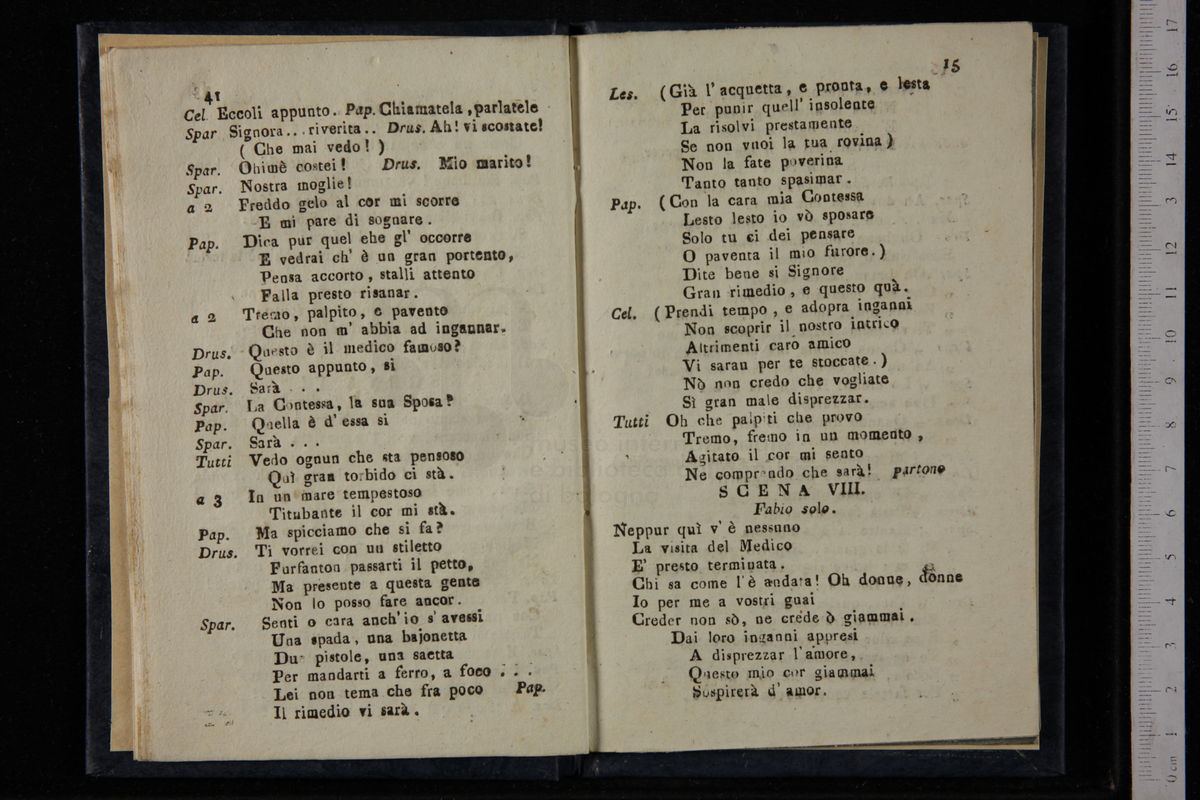 41
Cel Eccoli appunto. Pap. Chiamatela, parlatele
Spar Signora... riverita.. Drus. Ah! vi scostate!
( Che mai vedo! )
Spar. Ohimè costei! Drus. Mio marito!
Spar. Nostra moglie!
a 2 Freddo gelo al cor mi scorre
E mi pare di sognare.
Pap. Dica pur quel ehe gl' occorre
E vedrai ch' è un gran portento,
Pensa accorto, stalli attento
Falla presto risanar.
a 2 Tremo, palpito, e pavento
Che non m' abbia ad ingannar.
Drus. Questo è il medico famoso?
Pap. Questo appunto, si
Drus. Sarà . . .
Spar. La Contessa, la sua Sposa?
Pap. Quella è d' essa si
Spar. Sarà . . .
Tutti Vedo ognun che sta pensoso
Quì gran torbido ci stà.
a 3 In un mare tempestoso
Titubante il cor mi stà.
Pap. Ma spicciamo che si fa?
Drus. Ti vorrei con un stiletto
Furfanton passarti il petto,
Ma presente a questa gente
Non lo posso fare ancor.
Spar. Senti o cara anch' io s' avessi
Una spada, una bajonetta
Due pistole, una saetta
Per mandarti a ferro, a foco . . .
Lei non tema che fra poco Pap.
Il rimedio vi sarà.
15
Les. (Già l' acquetta, e pronta, e lesta
Per punir quell' insolente
La risolvi prestamente
Se non vuoi la tua rovina)
Non la fate poverina
Tanto tanto spasimar.
Pap. (Con la cara mia Contessa
Lesto lesto io vò sposare
Solo tu ci dei pensare
O paventa il mio furore.)
Dite bene si Signore
Gran rimedio, e questo quà.
Cel. (Prendi tempo, e adopra inganni
Non scoprir il nostro intrico
Altrimenti caro amico
Vi saran per te stoccate.)
Nò non credo che vogliate
Sì gran male disprezzar.
Tutti Oh che palpiti che provo
Tremo, fremo in un momento,
Agitato il cor mi sento
Ne comprendo che sarà! partono
SCENA VIII.
Fabio solo.
Neppur quì v' è nessuno
La visita del Medico
E' presto terminata.
Chi sa come l' è andata! Oh donne, donne
Io per me a vostri guai
Creder non sò, ne crede ò giammai.
Dai loro inganni appresi
A disprezzar l' amore,
Questo mio cor giammai
Sospirerà d' amor.
museo inter
e biblioteca
di bologna